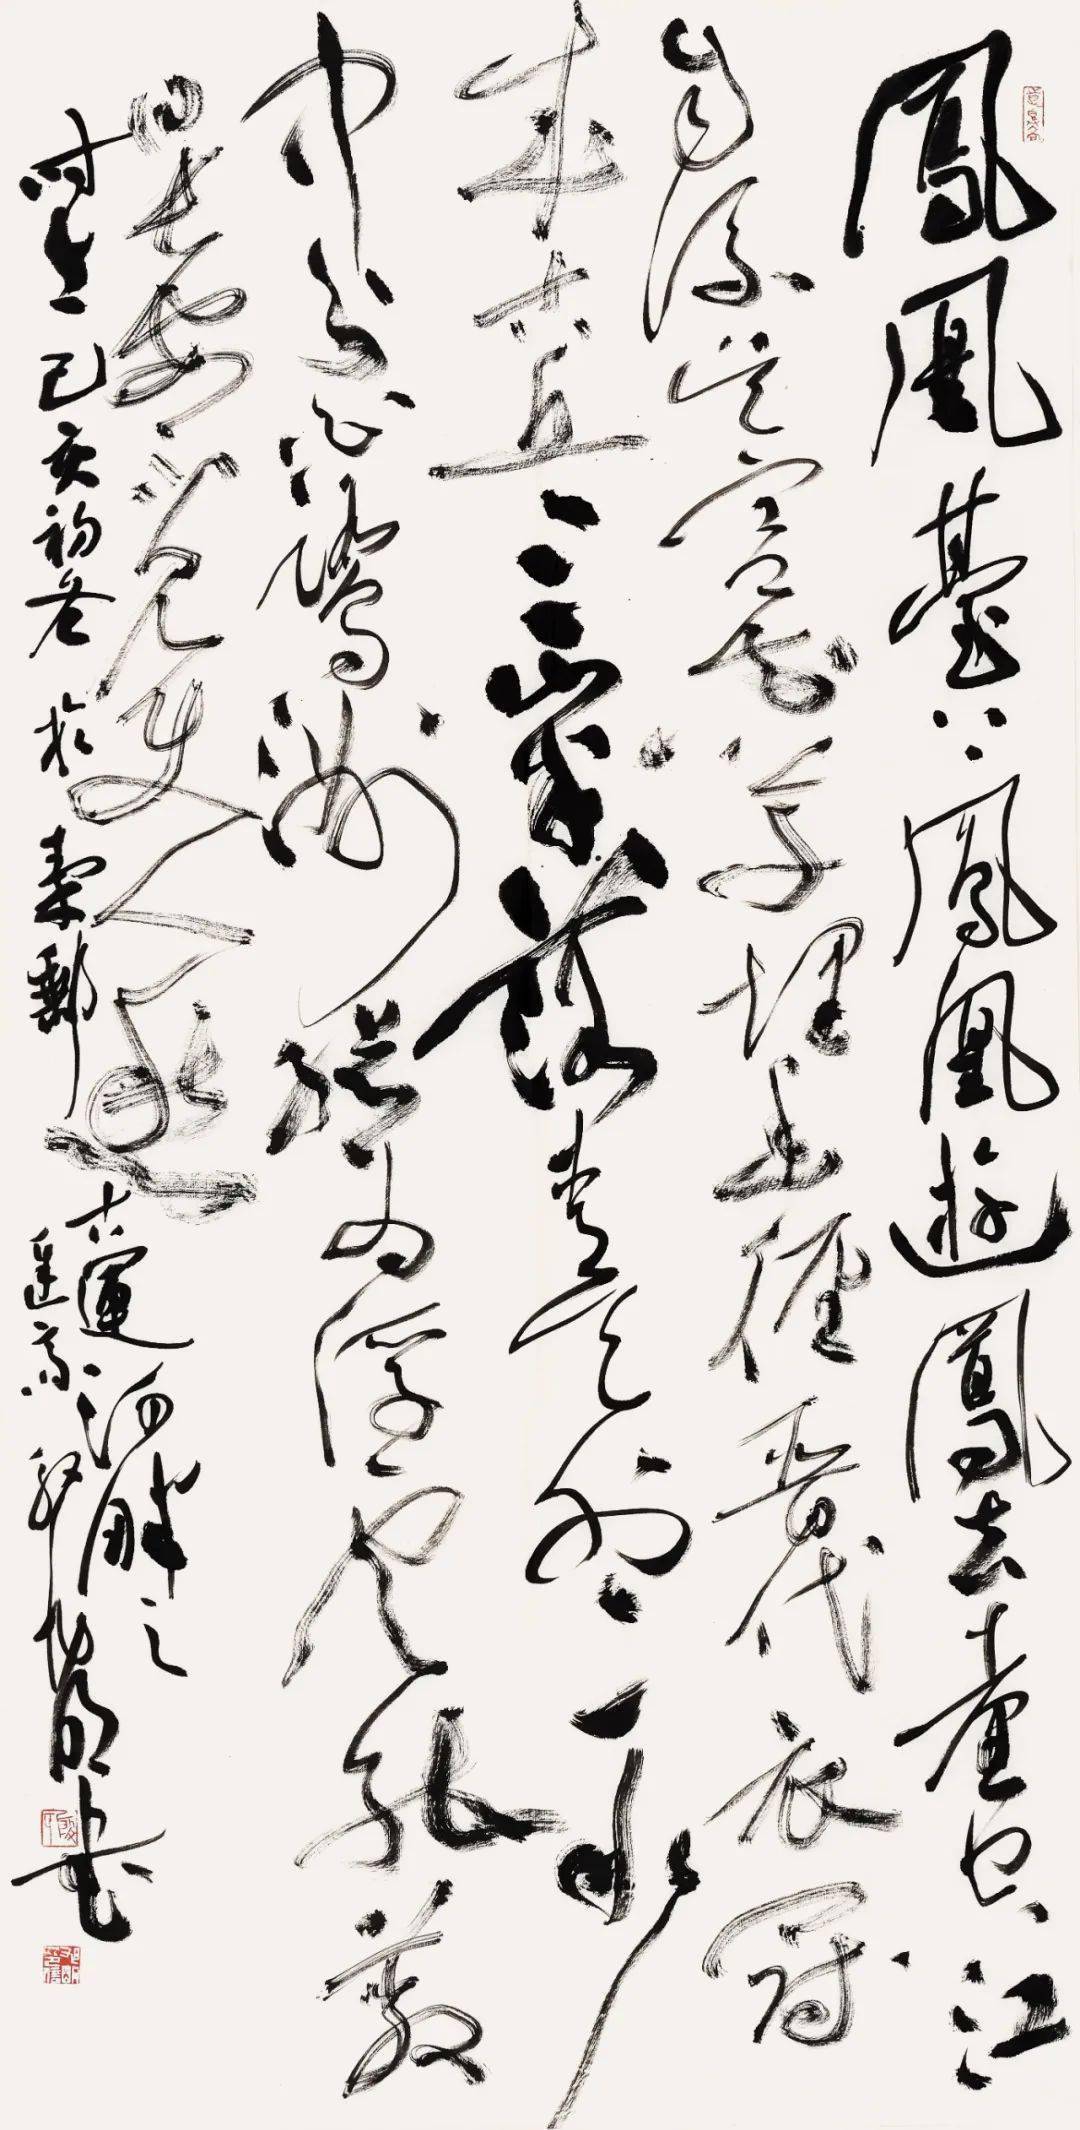 鳳凰臺上鳳凰遊鳳去臺空江
自流吳宮花草埋幽徑晉代衣冠
成古丘三山半落青天外一水
中分白鷺洲總為浮雲能蔽
日長安不見使人愁
時在己亥初冬於
古運河畔之
書